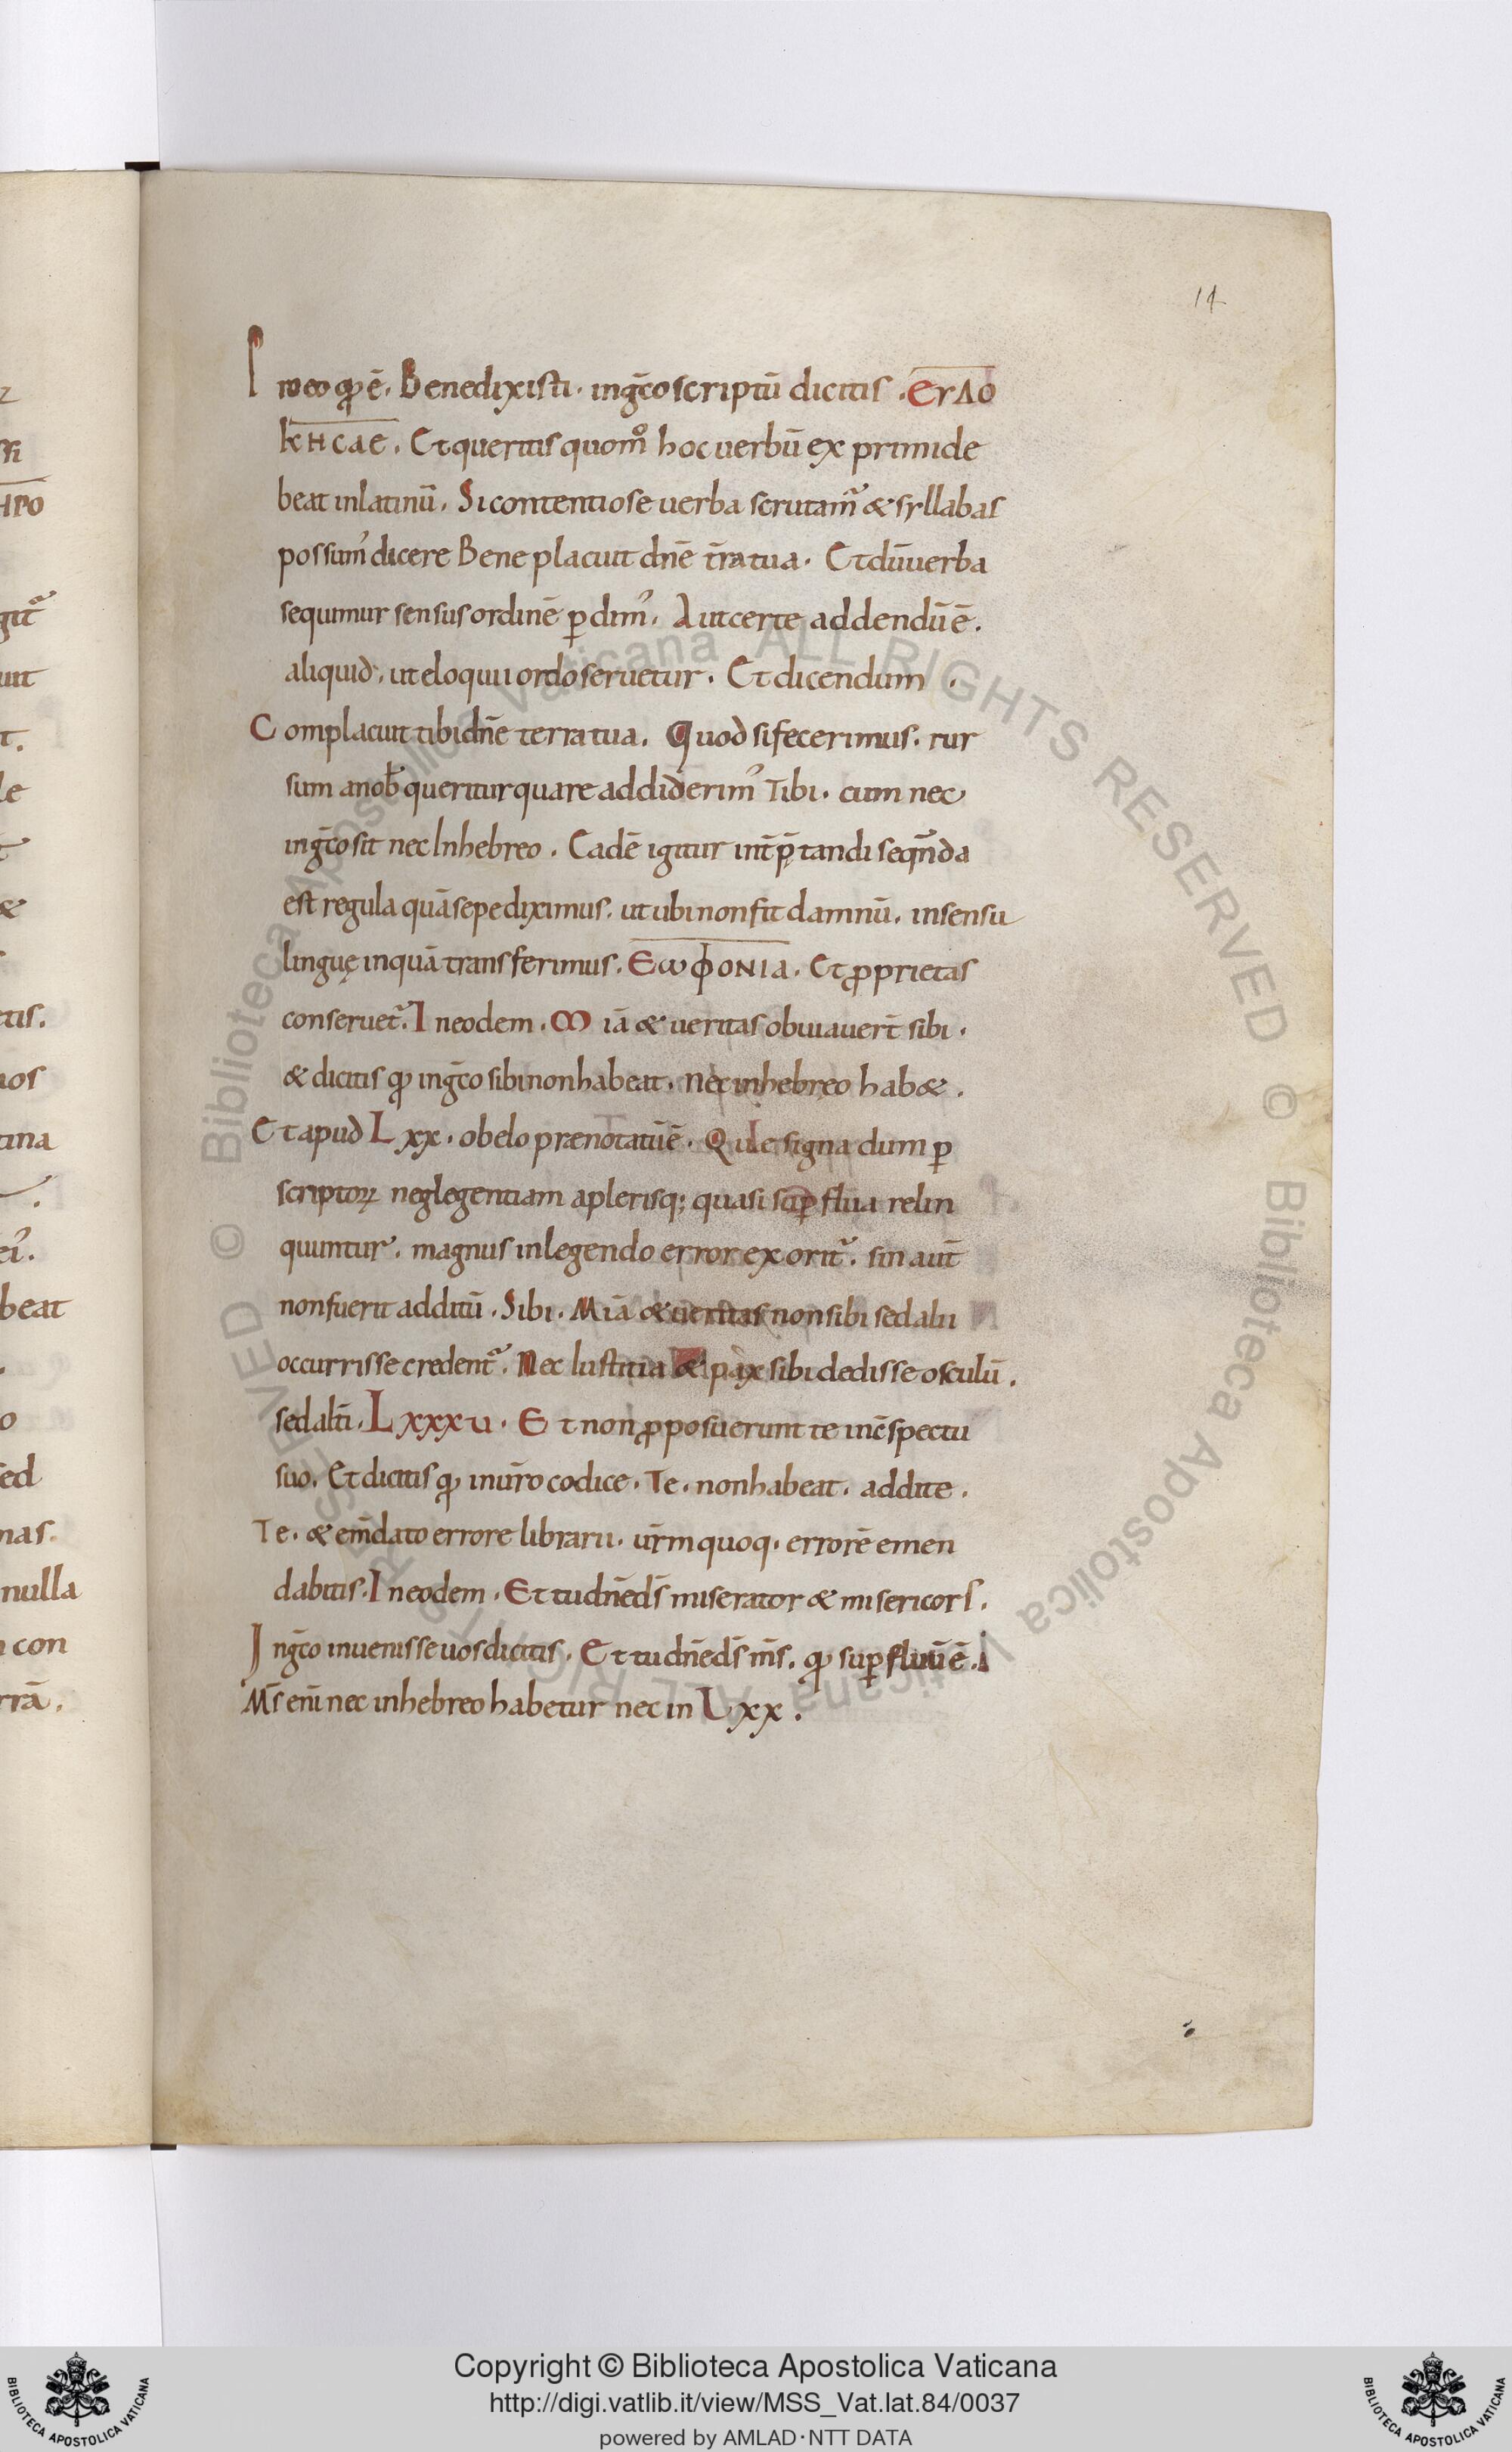 14
In eo q̄d ē. Benedixisti. ingc̄o scriptū dicitis. ЄΥΔΟ
ΚΗCΑЄ. Et queritis quom̊ hoc uerbū exprimi de
beat in latinū. Si contentiose uerba scrutam̃ & syllabas
possum' dicere Bene placuit dn̄e tr̄a tua. Et dū uerba
sequimur sensus ordinē p̱dim'. Aut certe addendū ē.
aliquid, ut eloquii ordo seruetur. Et dicendum.
Complacuit tibi dn̄e terra tua. Quod si fecerimus. rur
sum a nob̄ queritur quare addiderim' Tibi. cum nec
in gc̄o sit nec In hebreo. Eadē igitur int̄p̱̄tandi seqn̄da
est regula quā sepe diximus. ut ubi non fit damnū. in sensu
linguę in quā transferimus. ЄѠΦΟΝΙΑ. Et ꝓprietas
conseruet̃. In eodem. Miā & ueritas obuiauer̄t sibi.
& dicitis q̄d in gc̄o sibi non habeat. nec in hebreo hab&.
Et apud Lxx. obelo prænotatū ē. Qule signa dum p̱
scriptoꝝ neglegentiam a plerisq; quasi sup̱flua relin
quuntur. magnus in legendo error exorit̃. sin aut̄
non fuerit additū. Sibi. Miā & ueritas non sibi sed alii
occurrisse credent̃. Nec Iustitia & pax sibi dedisse osculū.
sed alt̄i. Lxxxu. Et non ꝓposuerunt te in c̄spectu
suo. Et dicitis q̄d in ur̄o codice. Te. non habeat. addite.
Te. & em̄dato errore librarii. ur̄m quoq. errorē emen
dabitis. In eodem. Et tu dn̄e ds̄ miserator & misericors.
In gc̄o inuenisse uos dicitis. Et tu dn̄e ds̄ ms̄. q̄d sup̱fluū ē.
Ms̄ eni nec in hebreo habetur nec in Lxx.
© Biblioteca Apostolica Vaticana ALL RIGHTS RESERVED © Biblioteca Apostolica Vaticana ALL RIGHTS RESERVED
Copyright © Biblioteca Apostolica Vaticana
http://digi.vatlib.it/view/MSS_Vat.lat.84/0037
powered by AMLAD・NTT DATA
BIBLIOTECA APOSTOLICA VATICANA
BIBLIOTECA APOSTOLICA VATICANA